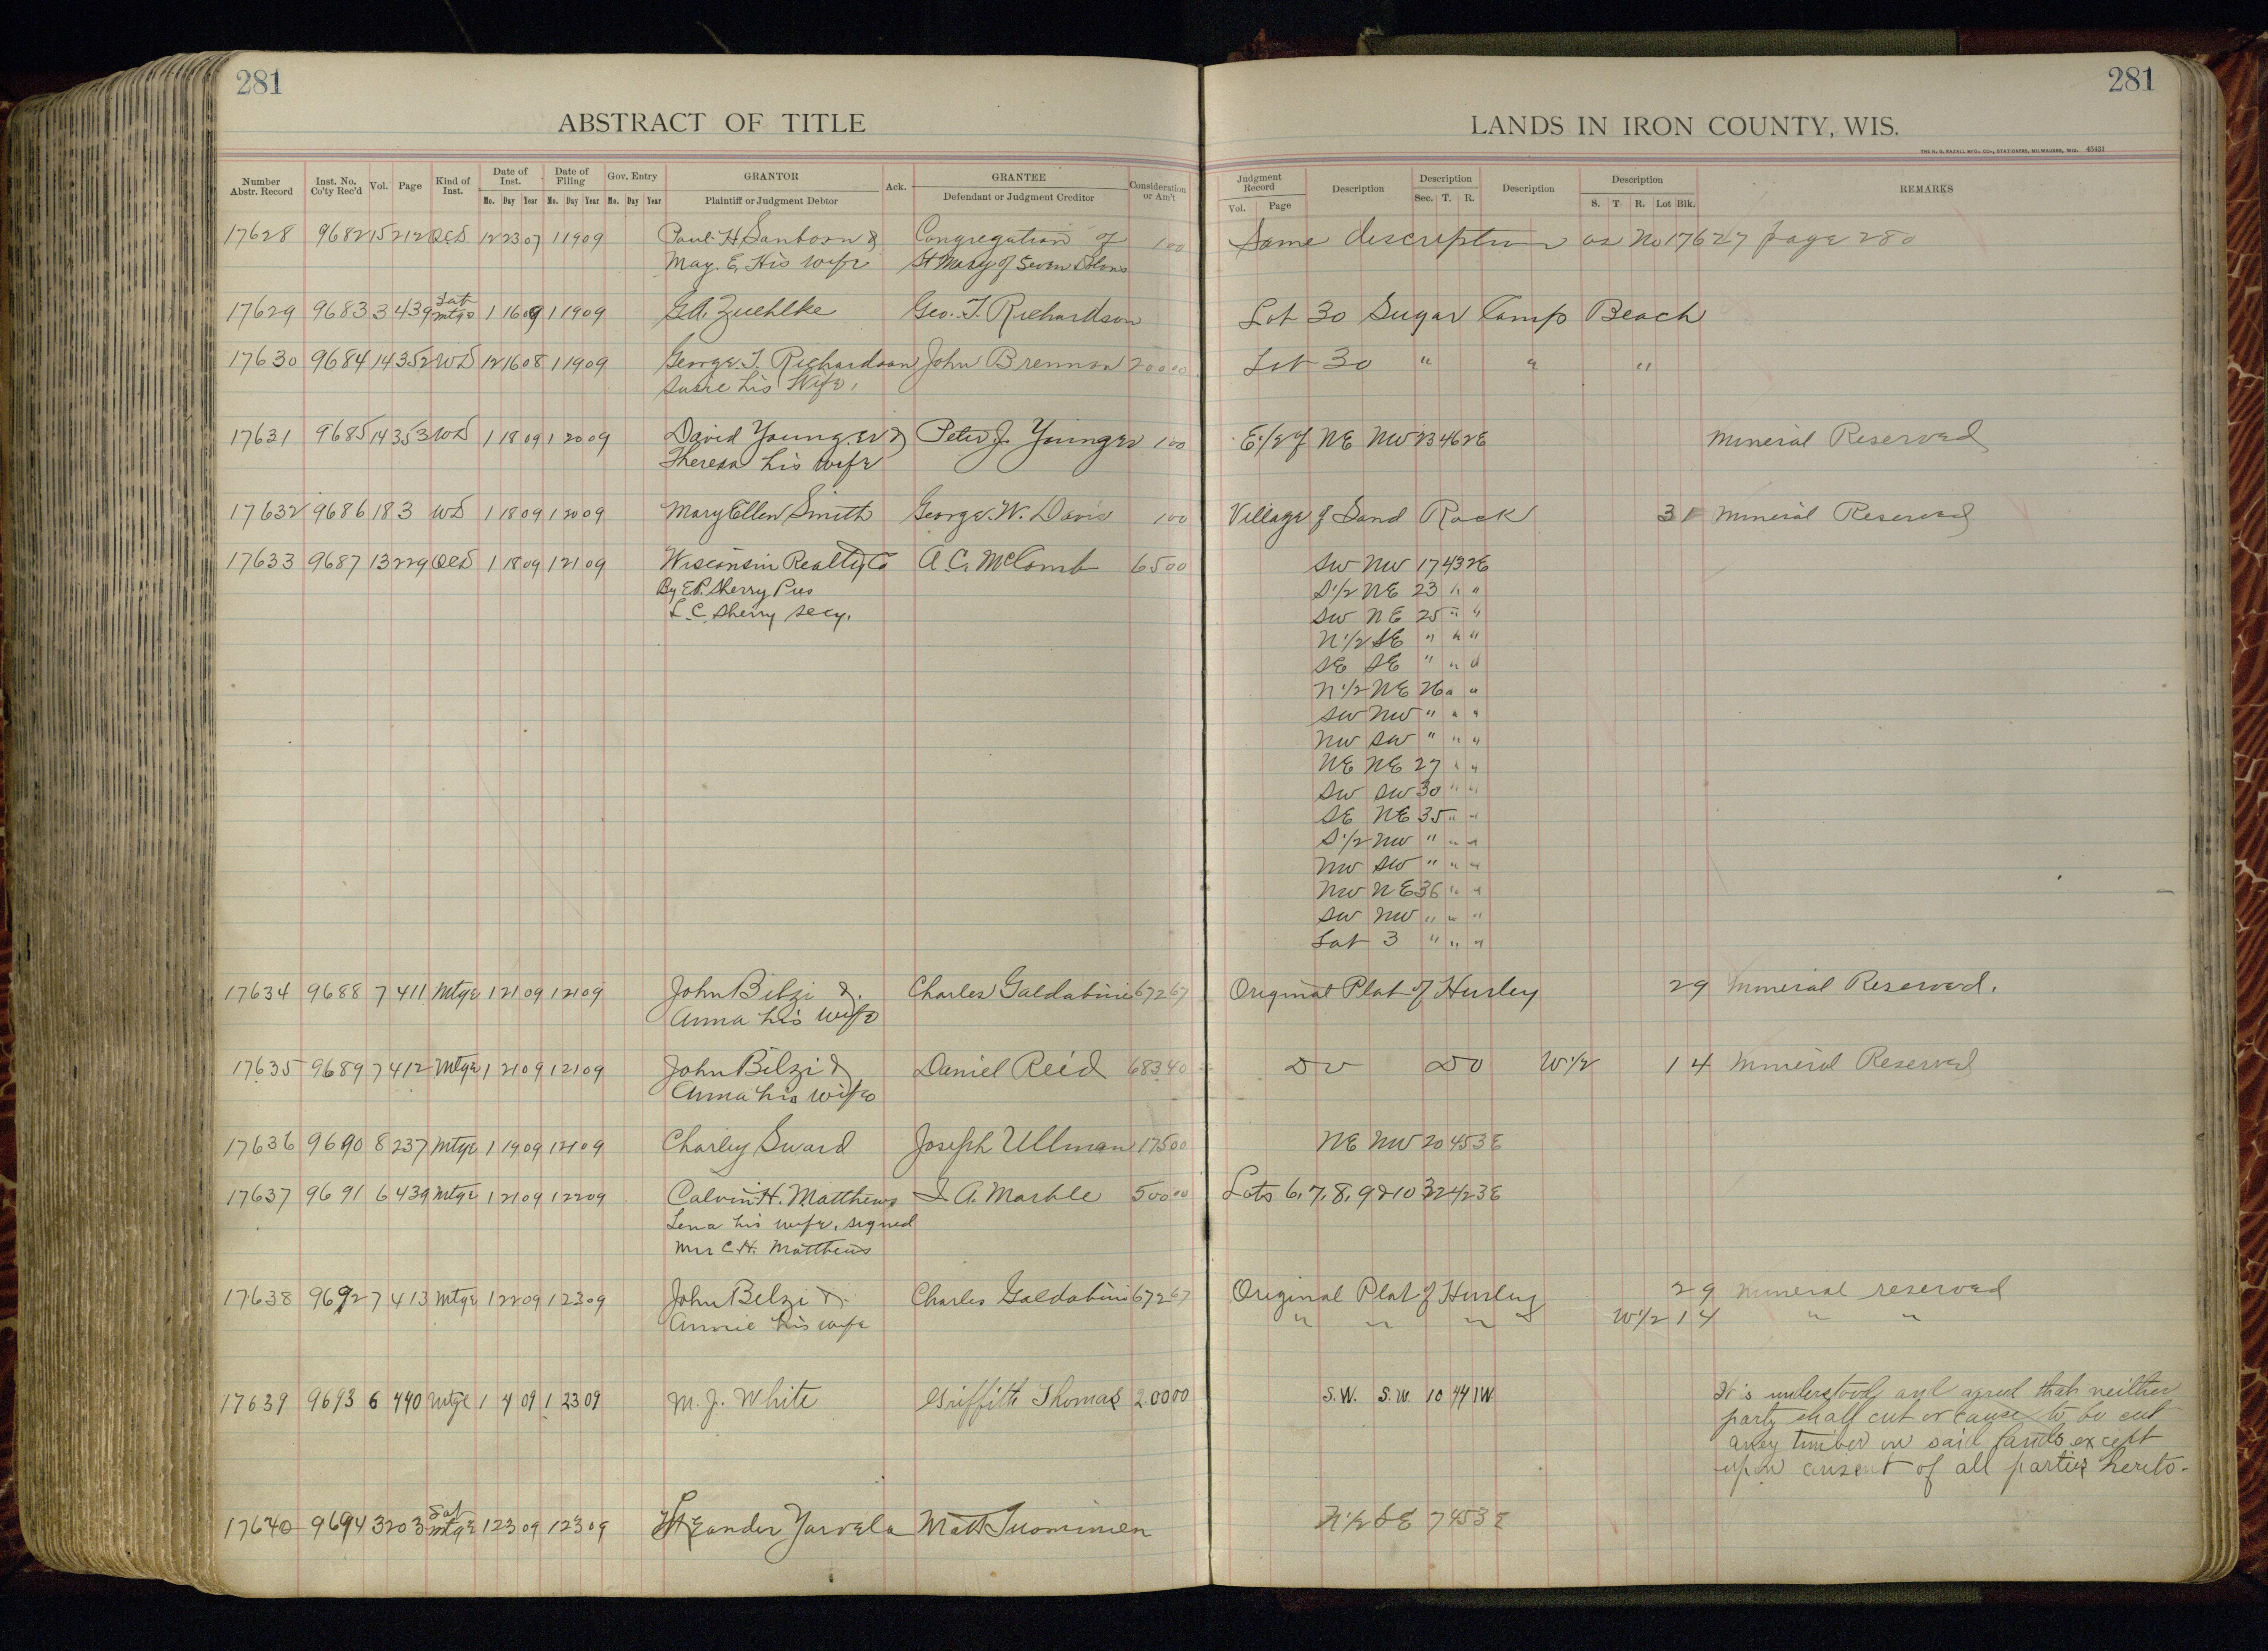 281
281
ABSTRACT OF TITLE
LANDS IN IRON COUNTY, WIS.
THE H. G. RAZALL MFG. CO., STATIONERS, MILWAUKEE, WIS. 45431
Number Abstr. Record Inst. No. Co'ty Rec'd Vol. Page Kind of Inst. Date of Inst. Mo. Day Year Date of Filing Mo. Day Year Gov. Entry Mo. Day Year GRANTOR Plaintiff or Judgment Debtor Ack. GRANTEE Defendant or Judgment Creditor Consideration or Am't
Judgment Record Vol. Page Description Description Sec. T. R. Description Description S. T. R. Lot Blk. REMARKS
17628 9682 15 212 QCD 12 23 07 1 19 09 Paul H Sanborn & Congregation of 1 00 Same description as No 17627 page 280
May. E. His wife St Mary of Seven Dolors
17629 9683 3 439 Sat mtge 1 16 09 1 19 09 G.A. Zuehlke Geo. T. Richardson Lot 30 Sugar Camp Beach
17630 9684 14 352 WD 12 16 08 1 19 09 George. T. Richardson John Brennan 200 00 Lot 30 " " "
Susie his Wife.
17631 9685 14 353 WD 1 18 09 1 20 09 David Younger & Peter J. Younger 1 00 E.1/2 of NE NW 23 46 2E Mineral Reserved
Theresa his wife
17632 9686 18 3 WD 1 18 09 1 20 09 Mary Ellen Smith George. W. Davis 1 00 Village of Sand Rock 3 1 Mineral Reserved
17633 9687 13 229 QCD 1 18 09 1 21 09 Wisconsin Realty Co A. C. McComb 65 00 SW NW 17 43 2E
By E.P. Sherry Pres S1/2 NE 23 " "
L. C. Sherry secy. SW NE 25 " "
N1/2 SE " " "
SE SE " " "
N1/2 NE 26 " "
SW NW " " "
NW SW " " "
NE NE 27 " "
SW SW 30 " "
SE NE 35 " "
S1/2 NW " " "
NW SW " " "
NW NE 36 " "
SW NW " " "
Lot 3 " " "
17634 9688 7 411 Mtge 1 21 09 1 21 09 John Bilzi &. Charles Galdabini 672 67 Original Plat of Hurley 2 9 Mineral Reserved.
Anna his wife
17635 9689 7 412 Mtge 1 21 09 1 21 09 John Bilzi & Daniel Reid 683 40 Do Do W1/2 1 4 Mineral Reserved
Anna his wife
17636 9690 8 237 Mtge 1 19 09 1 21 09 Charley Sward Joseph Ullman 175 00 NE NW 20 45 3E
17637 9691 6 439 Mtge 1 21 09 1 22 09 Calvin H. Matthews A. Marble 500 00 Lots 6, 7, 8, 9 & 10 32 42 3E
Lena his wife, signed
Mrs C. H. Matthews
17638 9692 7 413 Mtge 1 22 09 1 23 09 John Belzi &. Charles Galdabini 672 67 Original Plat of Hurley 2 9 Mineral reserved
Annie his wife " " " W1/2 1 4 " "
17639 9693 6 440 Mtge 1 4 09 1 23 09 M. J. White Griffith Thomas 200 00 S.W. S.W. 10 44 1W It is understood and agreed that neither
party shall cut or cause to be cut
any timber on said lands except
upon consent of all parties hereto.
17640 9694 3 203 Sat mtge 1 23 09 1 23 09 Yarvela Matt Tuominen N1/2 SE 7 45 3E